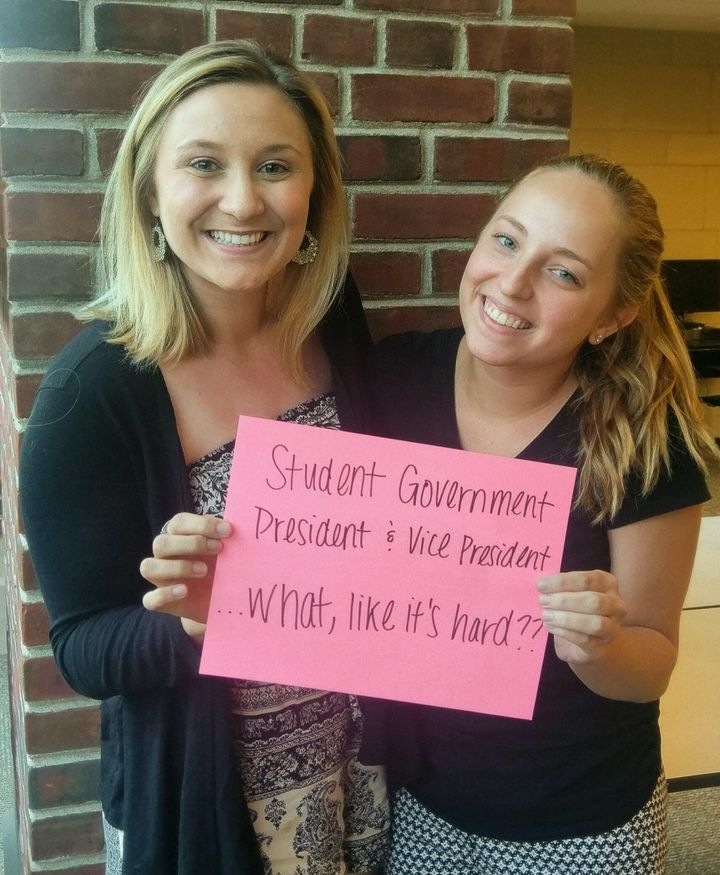 Student Government
President & Vice President
...What, like it's hard??